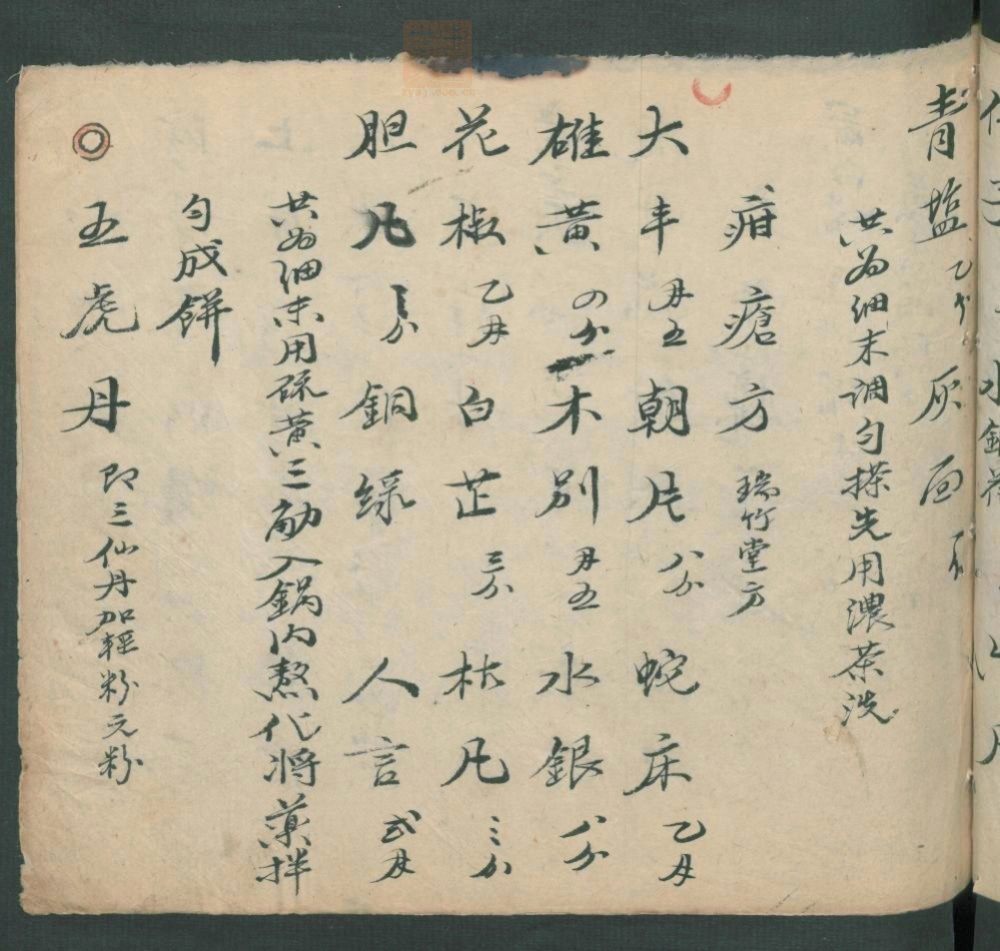 青塩乙分灰面
共为细末调匀搽先用濃茶洗
疳瘡方 瑞竹堂方
大丰 五朝片 八分 蛇床 乙
雄黃 の分 木别 五 水銀 八分
花椒 乙 白芷 三分 枯凡 三分
胆凡 三分 銅绿 人言 弍
共为细末用硫黄三觔入鍋内熬化将藥拌
匀成餅
◎五虎丹 即三仙丹加輕粉元粉